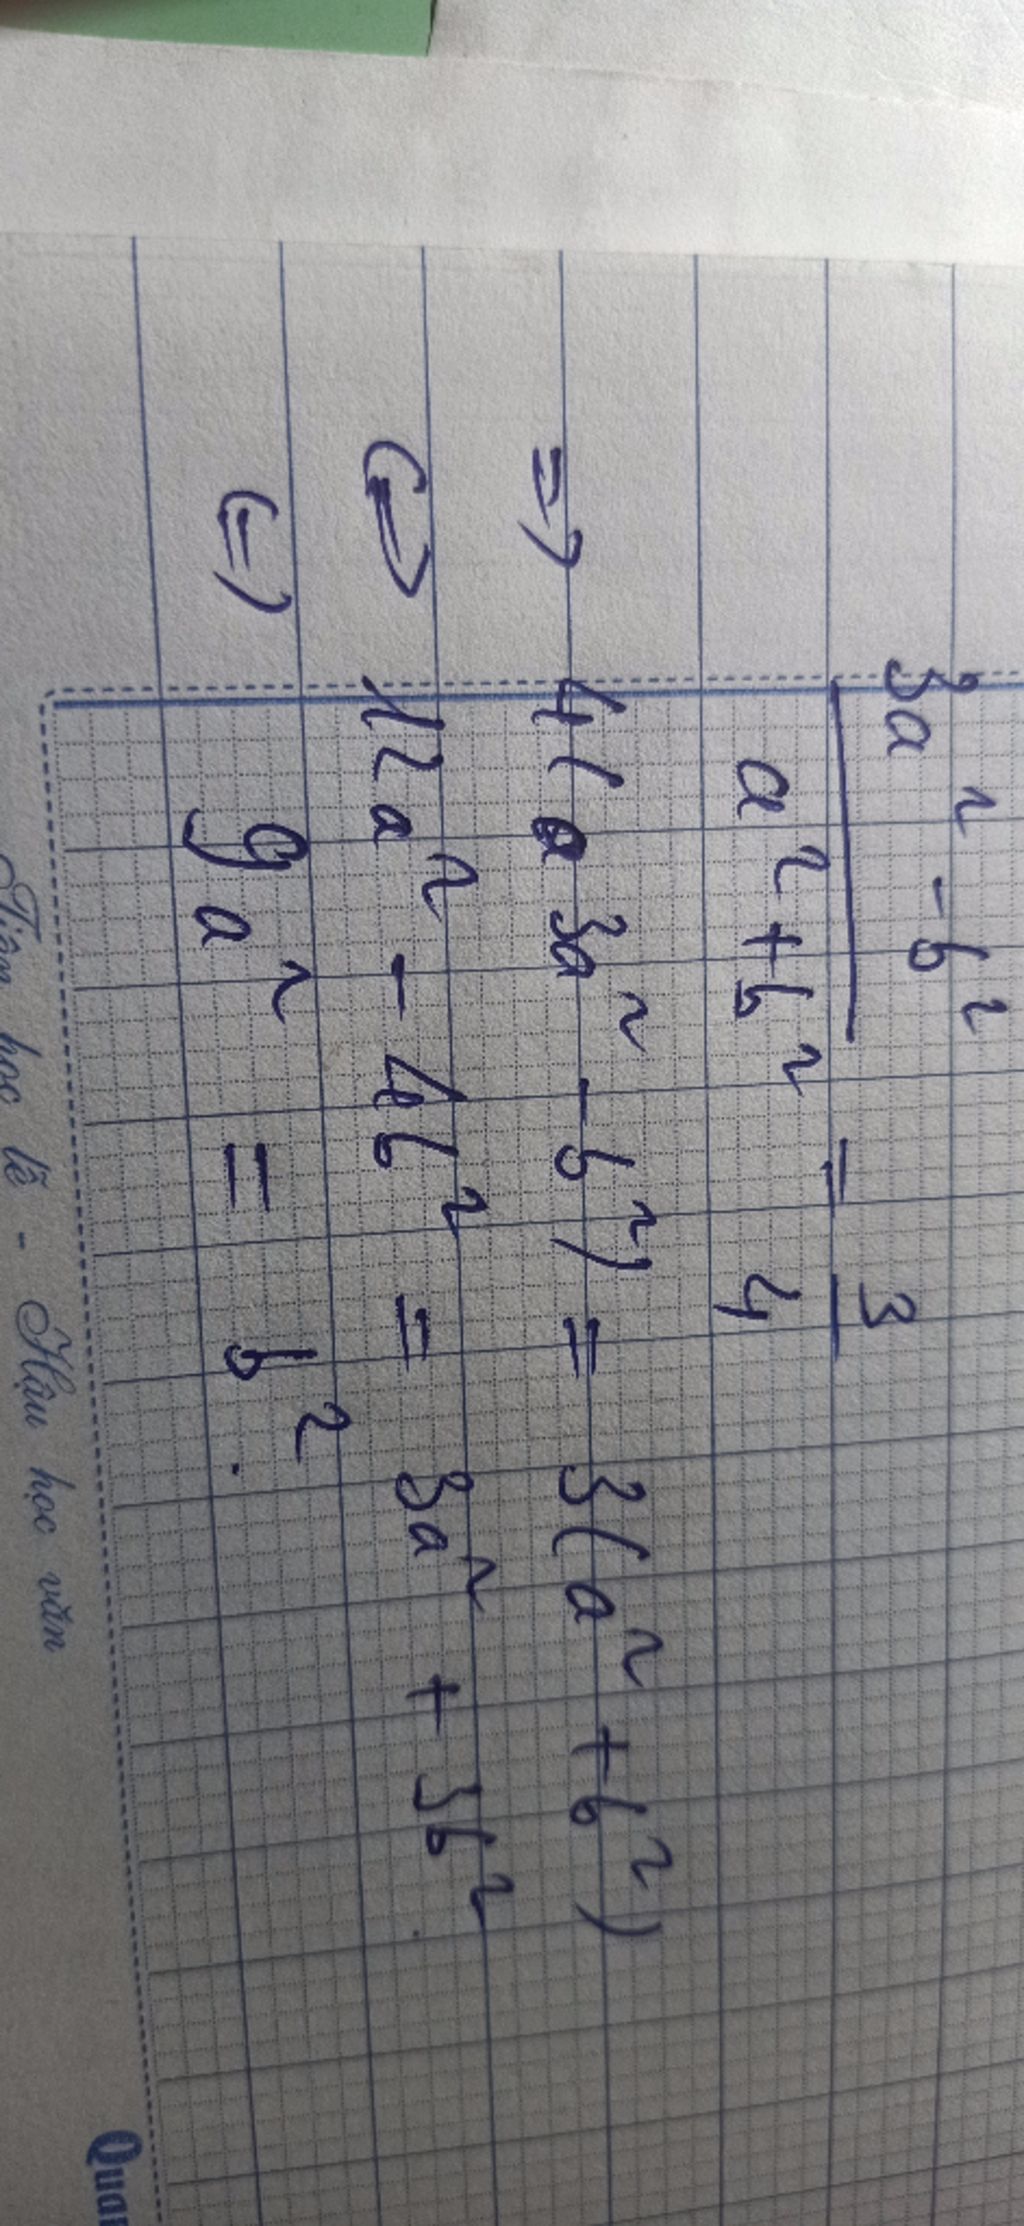 3a² - b²
a² + b² = 3/4
=> 4(3a² - b²) = 3(a² + b²)
<=> 12a² - 4b² = 3a² + 3b²
<=> 9a² = b².
Tiên học lễ - Hậu học văn